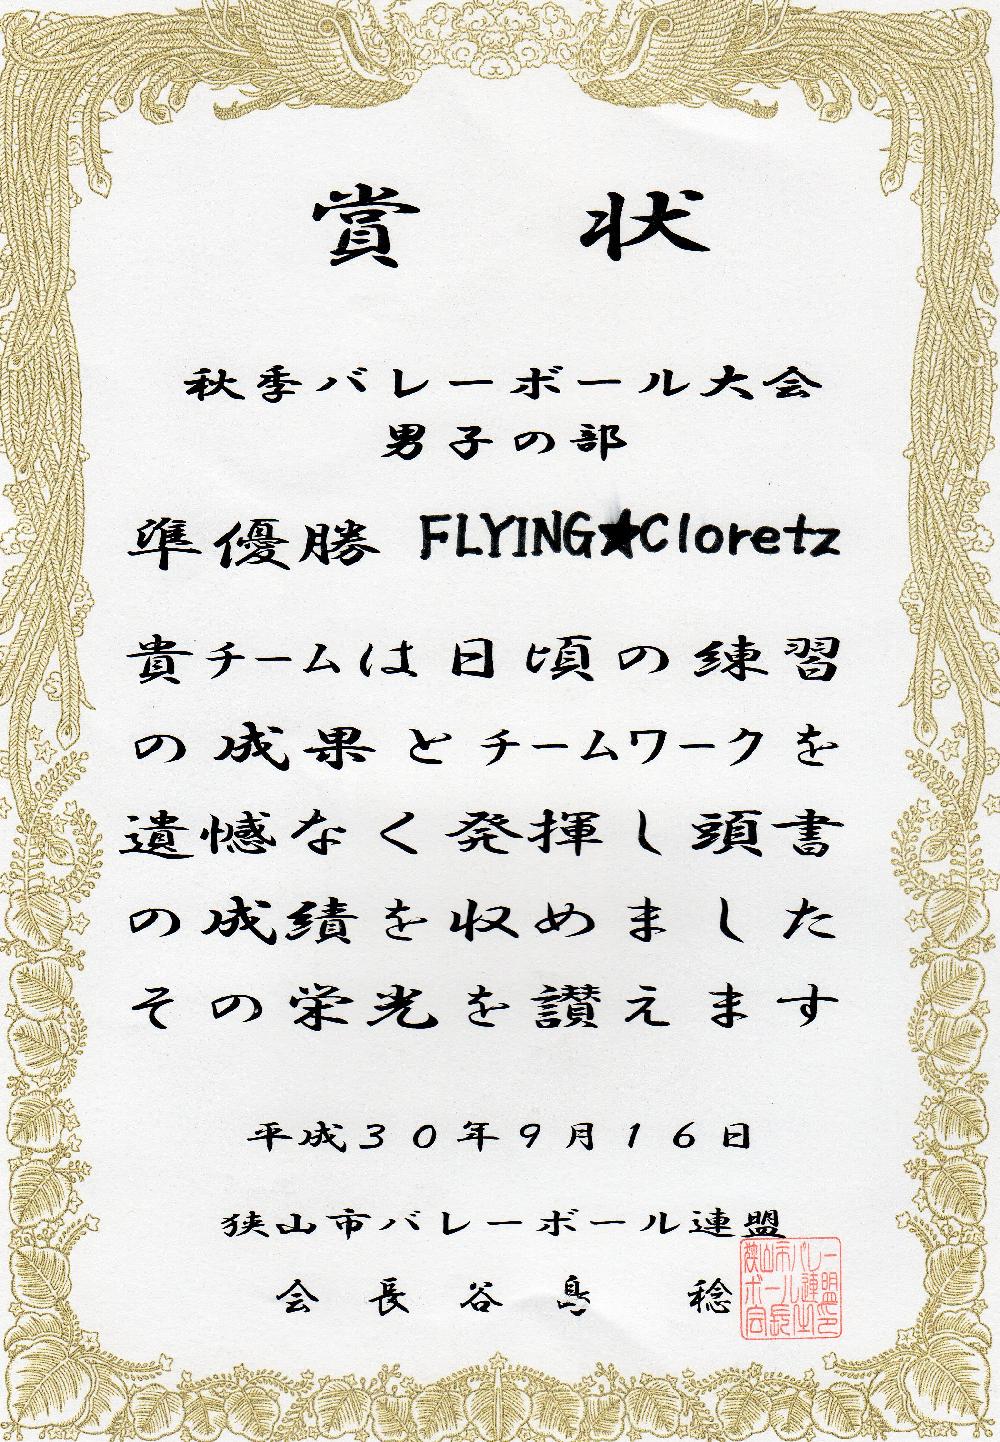 賞状
秋季バレーボール大会
男子の部
準優勝 FLYING★Cloretz
貴チームは日頃の練習
の成果とチームワークを
遺憾なく発揮し頭書
の成績を収めました
その栄光を讃えます
平成30年9月16日
狭山市バレーボール連盟
会長谷島 稔
狭山市バレー
ボール連盟
会長之印